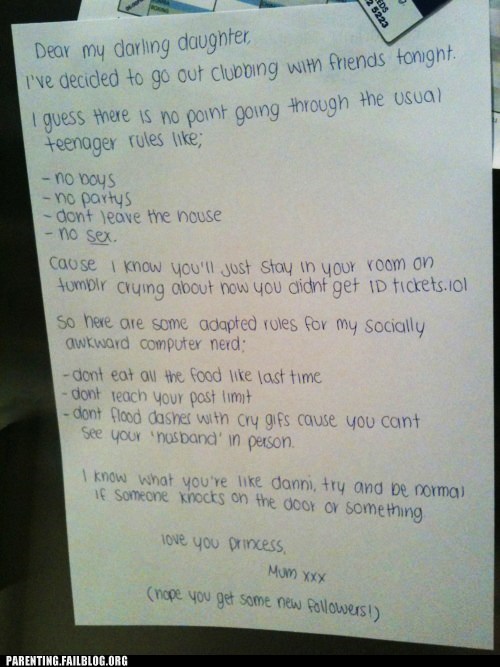 RDS
2 5223
Dear my darling daughter,
I've decided to go out clubbing with friends tonight.
I guess there is no point going through the usual
teenager rules like;
- no boys
- no partys
- dont leave the house
- no sex.
cause I know you'll just stay in your room on
tumblr crying about how you didnt get 1D tickets.lol
So here are some adapted rules for my socially
awkward computer nerd;
- dont eat all the food like last time
- dont reach your post limit
- dont flood dashes with cry gifs cause you cant
see your 'husband' in person.
I know what you're like danni, try and be normal
if someone knocks on the door or something
love you princess,
Mum xxx
(hope you get some new followers!)
PARENTING.FAILBLOG.ORG